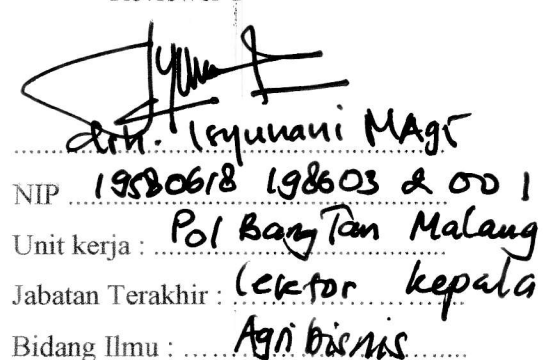 drh. Isyunani MAgr
NIP 19580618 198603 2 001
Unit kerja : PolBangTan Malang
Jabatan Terakhir : lektor kepala
Bidang Ilmu : Agribisnis